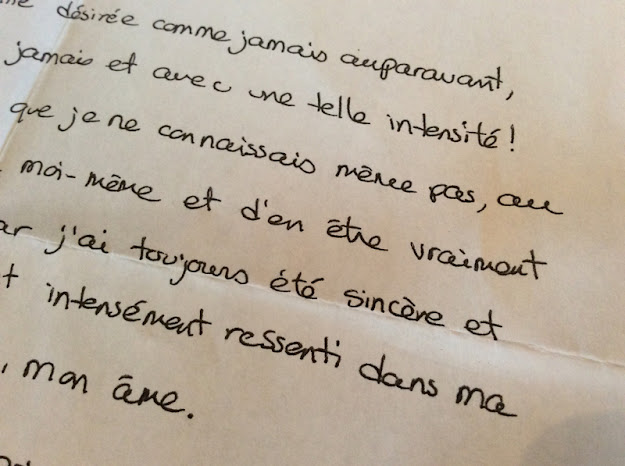 désirée comme jamais auparavant,
jamais et avec une telle intensité!
que je ne connaissais même pas, au
moi-même et d'en être vraiment
ar j'ai toujours été sincère et
t intensément ressenti dans ma
, mon âme.